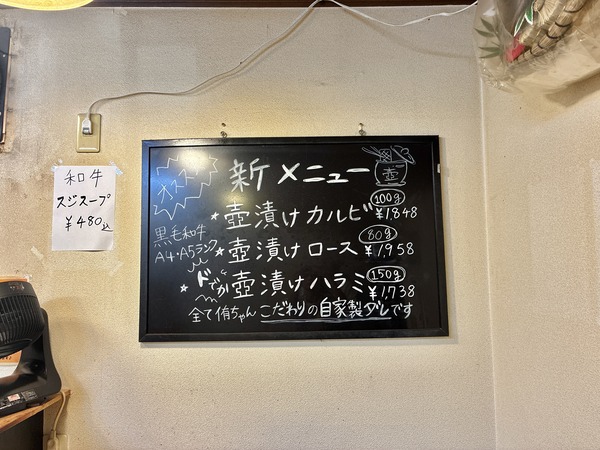 和牛
スジスープ
¥480込
オススメ
新メニュー
壺
黒毛和牛
A4・A5ランク
★壺漬けカルビ 100g ¥1,848
★壺漬けロース 80g ¥1,958
★ドでか壺漬けハラミ 150g ¥1,738
全て侑ちゃんこだわりの自家製ダレです